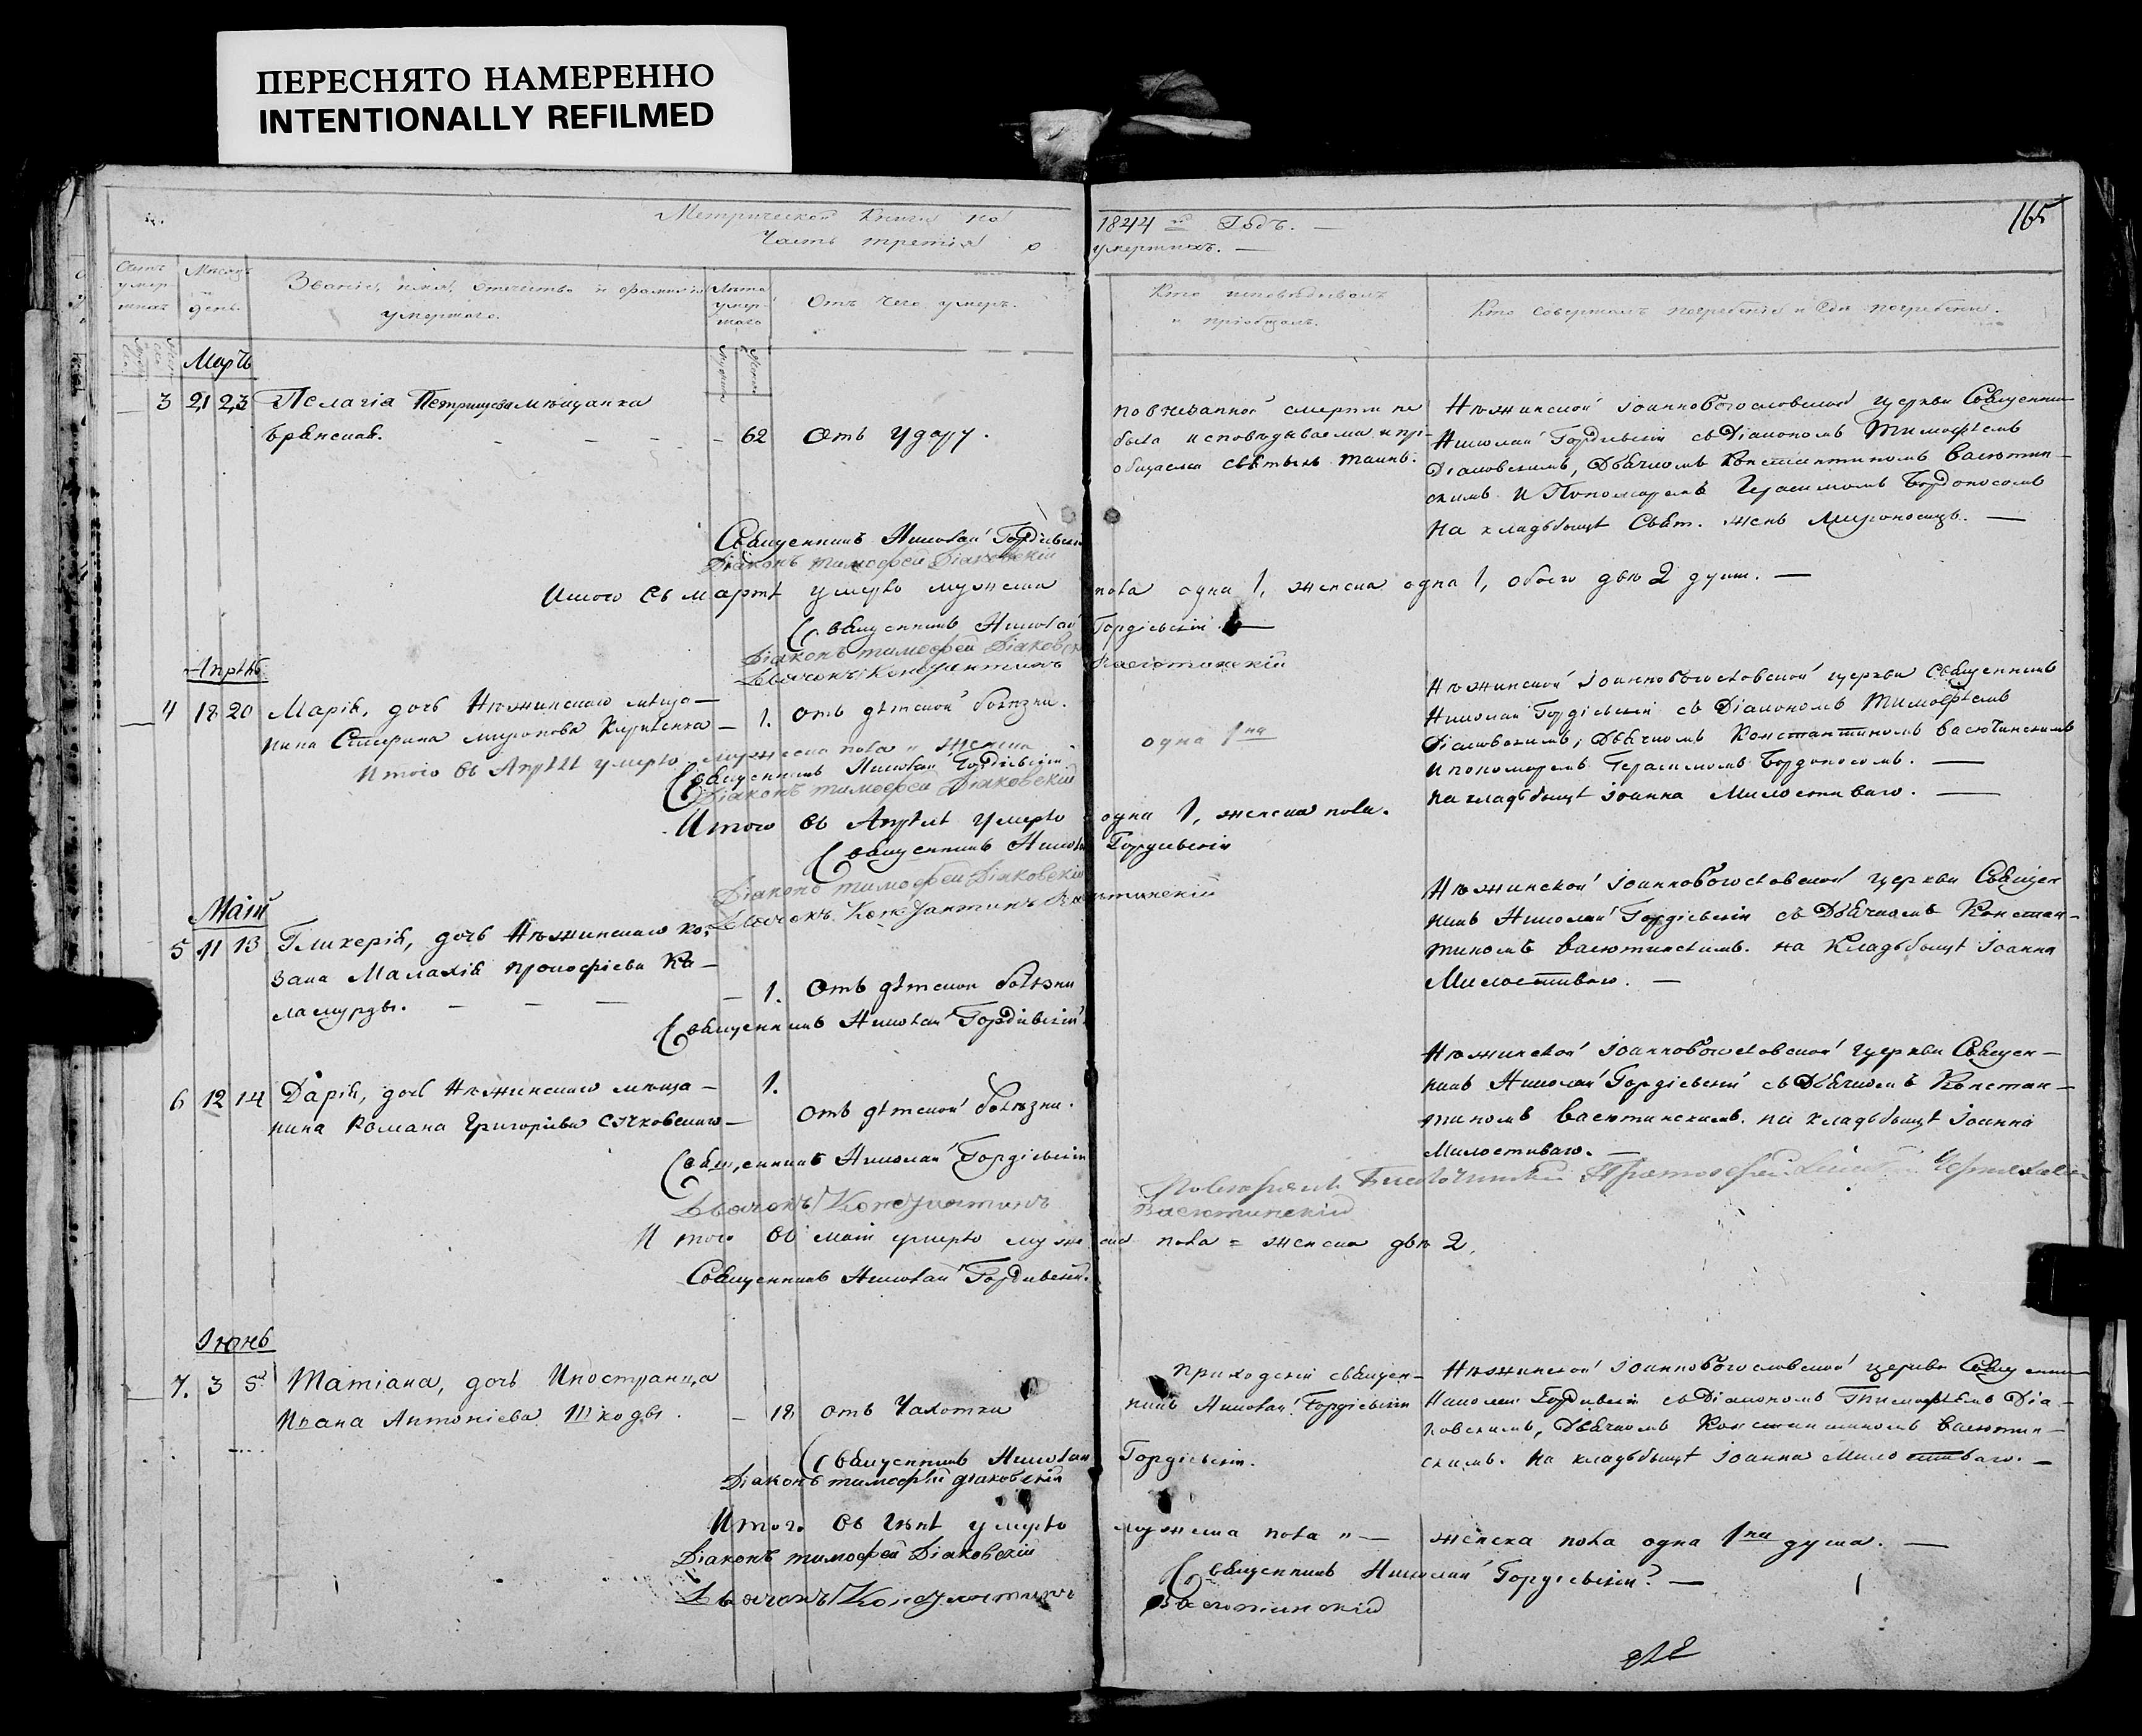 ПЕРЕСНЯТО НАМЕРЕННО
INTENTIONALLY REFILMED
Метрической книги на 1844 й Годъ. —
165
Часть третія о умершихъ. —
Мѣсяцъ и день.
Званіе, имя, отчество и фамилія умершаго.
Лѣта умершаго
Отъ чего умеръ.
Кто исповѣдывалъ и пріобщалъ.
Кто совершалъ погребеніе и гдѣ погребены.
Мартъ
3 21 23 Пелагія мѣщанка
62 Отъ удару.
была исповѣдываема и прі-
общаема святыхъ таинъ.
Нѣжинской Іоанно Богословской церкви Священникъ
Николай Гордіевскій съ Діакономъ Тимофѣемъ
Діаковскимъ, Дьячкомъ Константиномъ Васютин-
скимъ и Пономаремъ Герасимомъ Бордоносомъ
На кладбищѣ Свят. женъ Мироносицъ. —
Священникъ Николай Гордіевскій
Діаконъ Тимофей Діаковскій
Итого въ мартѣ умерло мужеска пола одна 1, женска одна 1, обоего двѣ 2 душ. —
Священникъ Николай Гордіевскій. —
Діаконъ Тимофей Діаковскій
Дьячокъ Константинъ Васютинскій
Апрѣль
4 18 20 Марія, дочь Нѣжинскаго мѣща-
нина
1. Отъ дѣтской болѣзни.
Нѣжинской Іоанно Богословской церкви Священникъ
Николай Гордіевскій съ Діакономъ Тимофѣемъ
Діаковскимъ, Дьячкомъ Константиномъ Васютинскимъ
и пономаремъ Герасимомъ Бордоносомъ. —
На кладбищѣ Іоанна Милостиваго. —
Итого въ Апрѣлѣ умерло мужеска пола „ женска
одна 1на
Священникъ Николай Гордіевскій
Діаконъ Тимофей Діаковскій
Итого въ Апрѣлѣ умерло одна 1, женска пола.
Священникъ Николай Гордіевскій
Діаконъ Тимофей Діаковскій
Дьячокъ Константинъ Васютинскій
Май
5 11 13 Гликерія, дочь Нѣжинскаго ко-
зака Малахія Прокофіева Ка-
ламурзы. — — —
1. Отъ дѣтской болѣзни
Нѣжинской Іоанно Богословской церкви Священ
никъ Николай Гордіевскій съ Дьячкомъ Констан-
тиномъ Васютинскимъ. на Кладбищѣ Іоанна
Милостиваго. —
Священникъ Николай Гордіевскій.
6 12 14 Дарія, дочь Нѣжинскаго мѣща-
нина Романа Григоріева
1.
Отъ дѣтской болѣзни.
Нѣжинской Іоанно Богословской церкви Священ-
никъ Николай Гордіевскій съ Дьячкомъ Констан-
тиномъ Васютинскимъ. на кладбищѣ Іоанна
Милостиваго. —
Священникъ Николай Гордіевскій
Дьячокъ Константинъ Васютинскій
Итого въ маіи умерло мужеска пола = женска двѣ 2.
Священникъ Николай Гордіевскій.
Іюнь
7. 3 5 Татіана, дочь Иностранца
Ивана Антоніева Шкоды.
— 18 отъ Чахотки
Приходскій священ-
никъ Николай Гордіевскій
Нѣжинской Іоанно Богословской церкви Священникъ
Николай Гордіевскій съ Діакономъ Тимофѣемъ Діа-
ковскимъ, Дьячкомъ Константиномъ Васютин-
скимъ. На кладбищѣ Іоанна Милостиваго. —
Священникъ Николай Гордіевскій.
Діаконъ Тимофей Діаковскій
Итого въ Іюнѣ умерло мужеска пола „ — женска пола одна 1на душа. —
Діаконъ Тимофей Діаковскій
Священникъ Николай Гордіевскій. —
Дьячокъ Константинъ Васютинскій